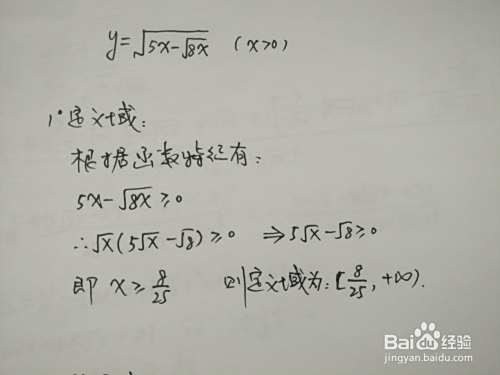 y=√(5x-√(8x)) (x>0)
1°定义域:
根据函数特征有:
5x-√(8x)≥0
∴√x(5√x-√8)≥0 ⇒5√x-√8≥0
即 x≥8/25 则定义域为:[8/25,+∞).
Bai经验
jingyan.baidu.com